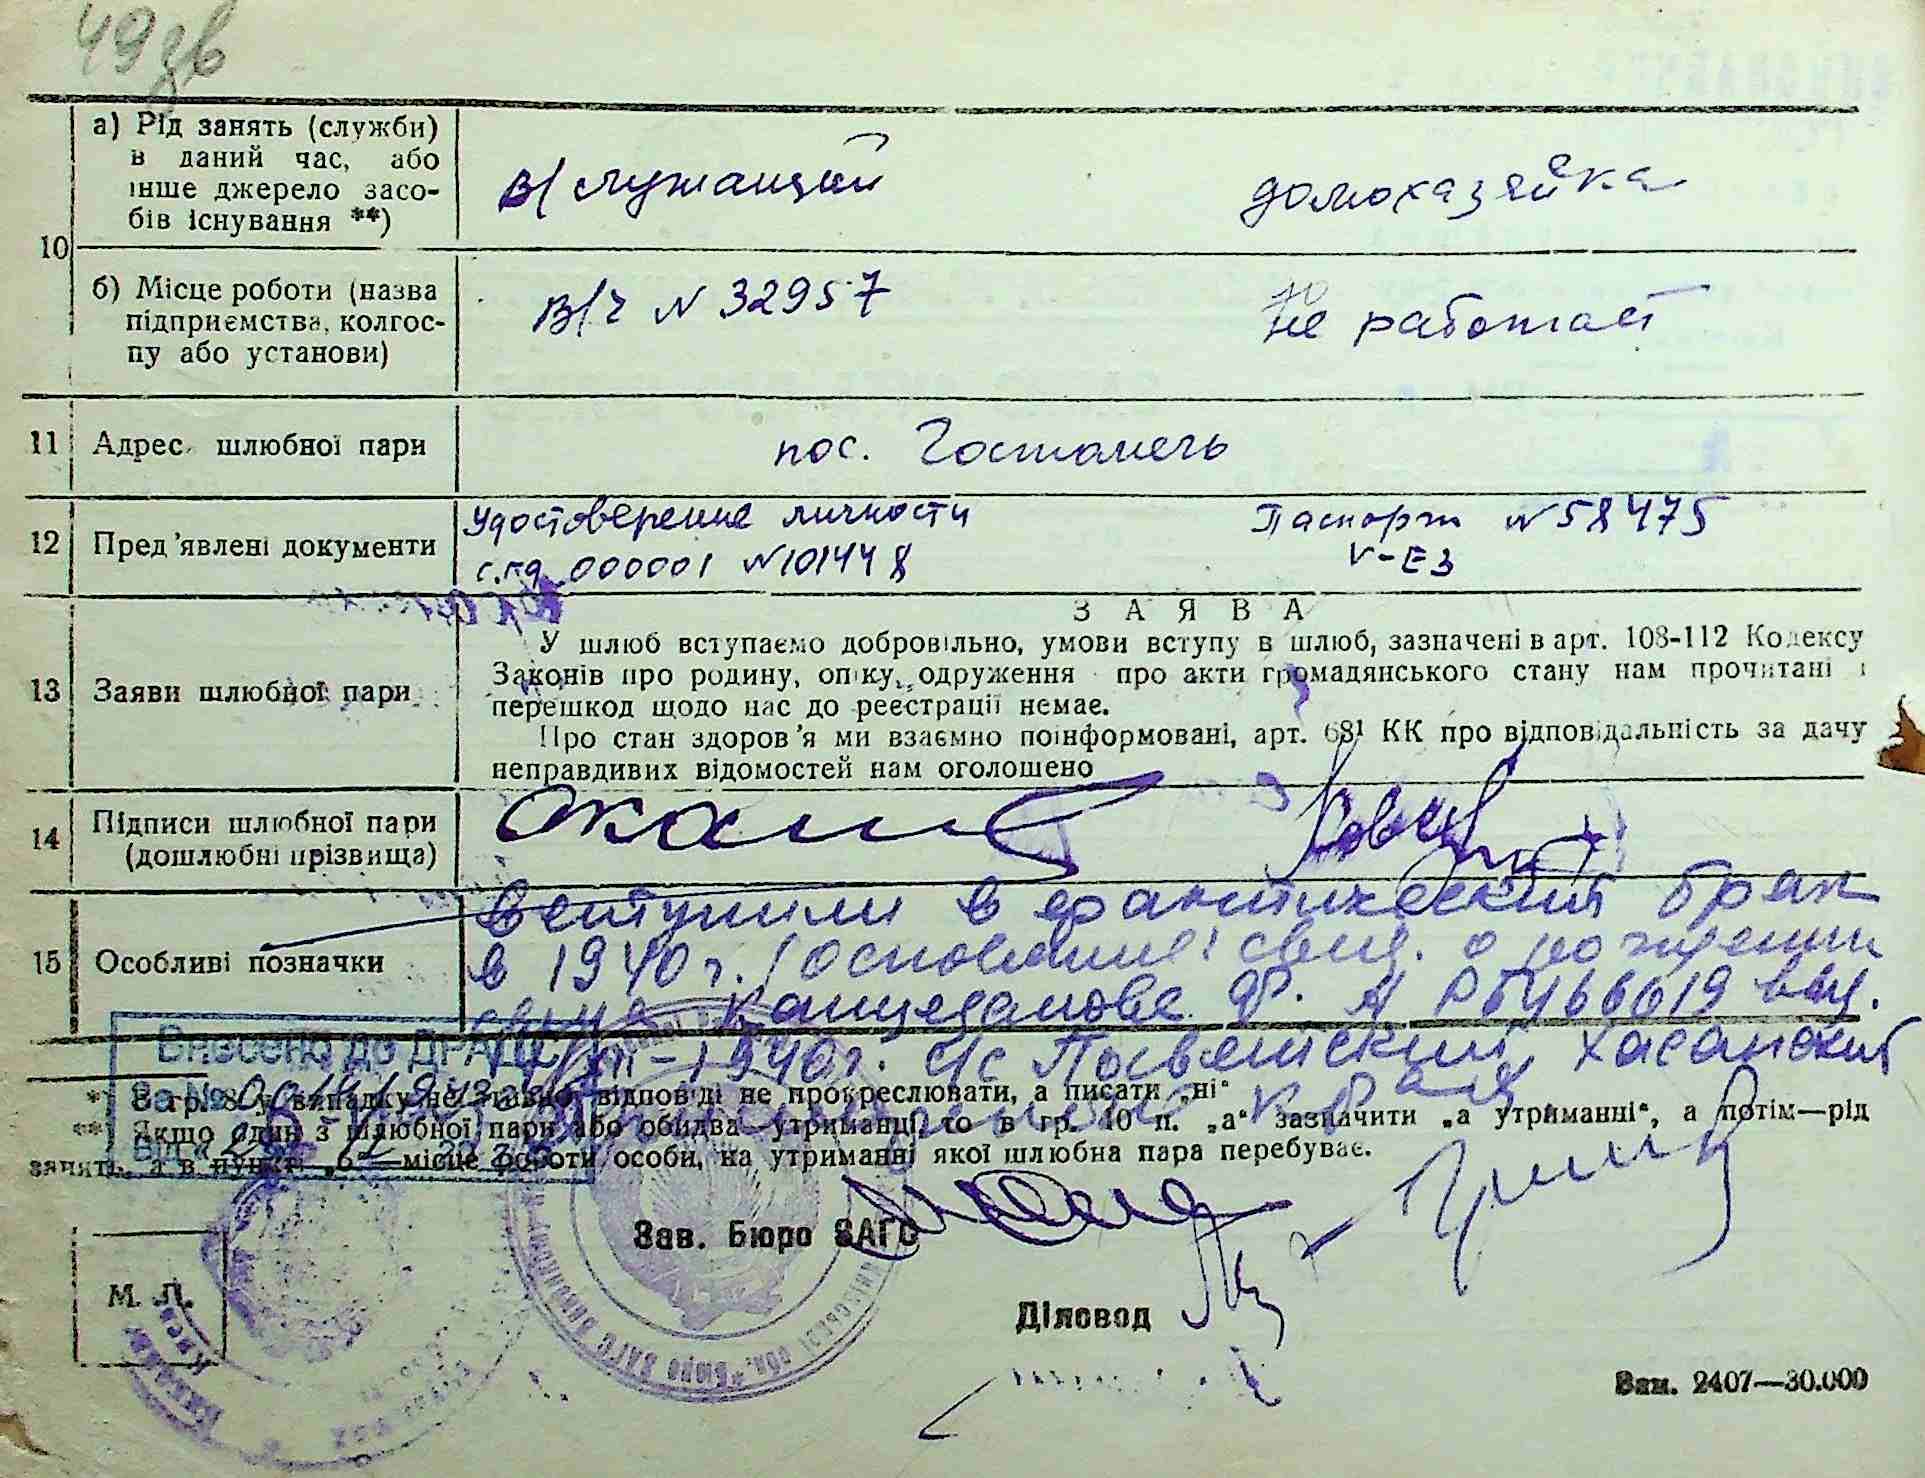 49 зв
а) Рід занять (служби)
в даний час, або
інше джерело засо-
бів існування **)
В/служащий
домохазяйка
10
б) Місце роботи (назва
підприємства, колгос-
пу або установи)
В/ч N 32957
Не работает
11 Адрес шлюбної пари
пос. Гостомель
12 Пред'явлені документи
Удостоверение личности
000001 N 101448
Паспорт N 58475
V-ЕЗ
13 Заяви шлюбної пари
ЗАЯВА
У шлюб вступаємо добровільно, умови вступу в шлюб, зазначені в арт. 108-112 Кодексу
Законів про родину, опіку, одруження про акти громадянського стану нам прочитані і
перешкод щодо нас до реєстрації немає.
Про стан здоров'я ми взаємно поінформовані, арт. 68¹ КК про відповідальність за дачу
неправдивих відомостей нам оголошено
14 Підписи шлюбної пари
(дошлюбні прізвища)
15 Особливі позначки
Вступили в фактический брак
в 1940 г. (основание: свид. о рождении
сына N РБ 466619 выд.
1940 г. с/с Хасанский
Внесено до ДРАЦС
За №
Від
*) В гр. 8 у випадку не відповіді не прокреслювати, а писати „ні"
**) Якщо один з шлюбної пари або обидва утриманці, то в гр. 10 п. „а" зазначити „а утриманні", а потім—рід
занять, а в пункті „б"—місце роботи особи, на утриманні якої шлюбна пара перебуває.
Зав. Бюро ЗАГС
М. П.
Діловод
Зам. 2407—30.000